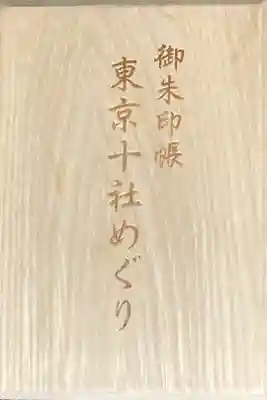 御朱印帳
東京十社めぐり